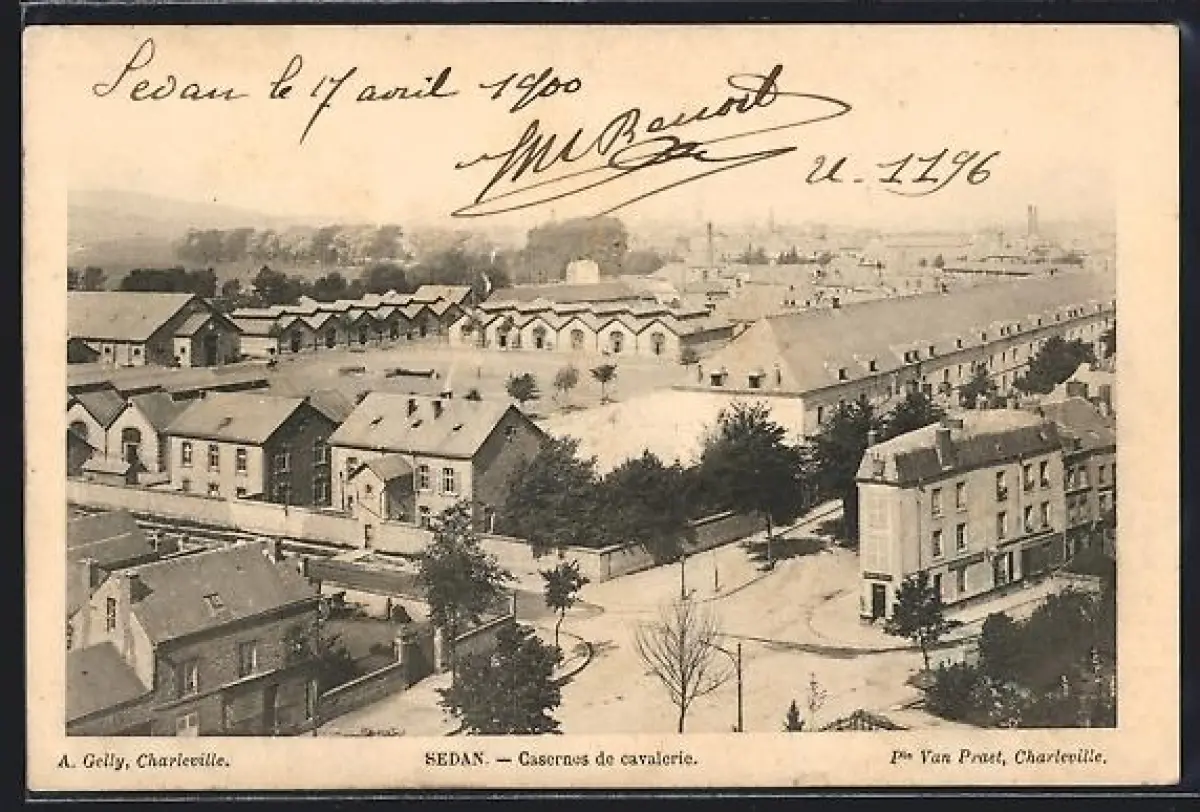 Sedan le 17 avril 1900
Benoit
u - 1196
A. Gelly, Charleville.
SEDAN. — Casernes de cavalerie.
Pte Van Praet, Charleville.